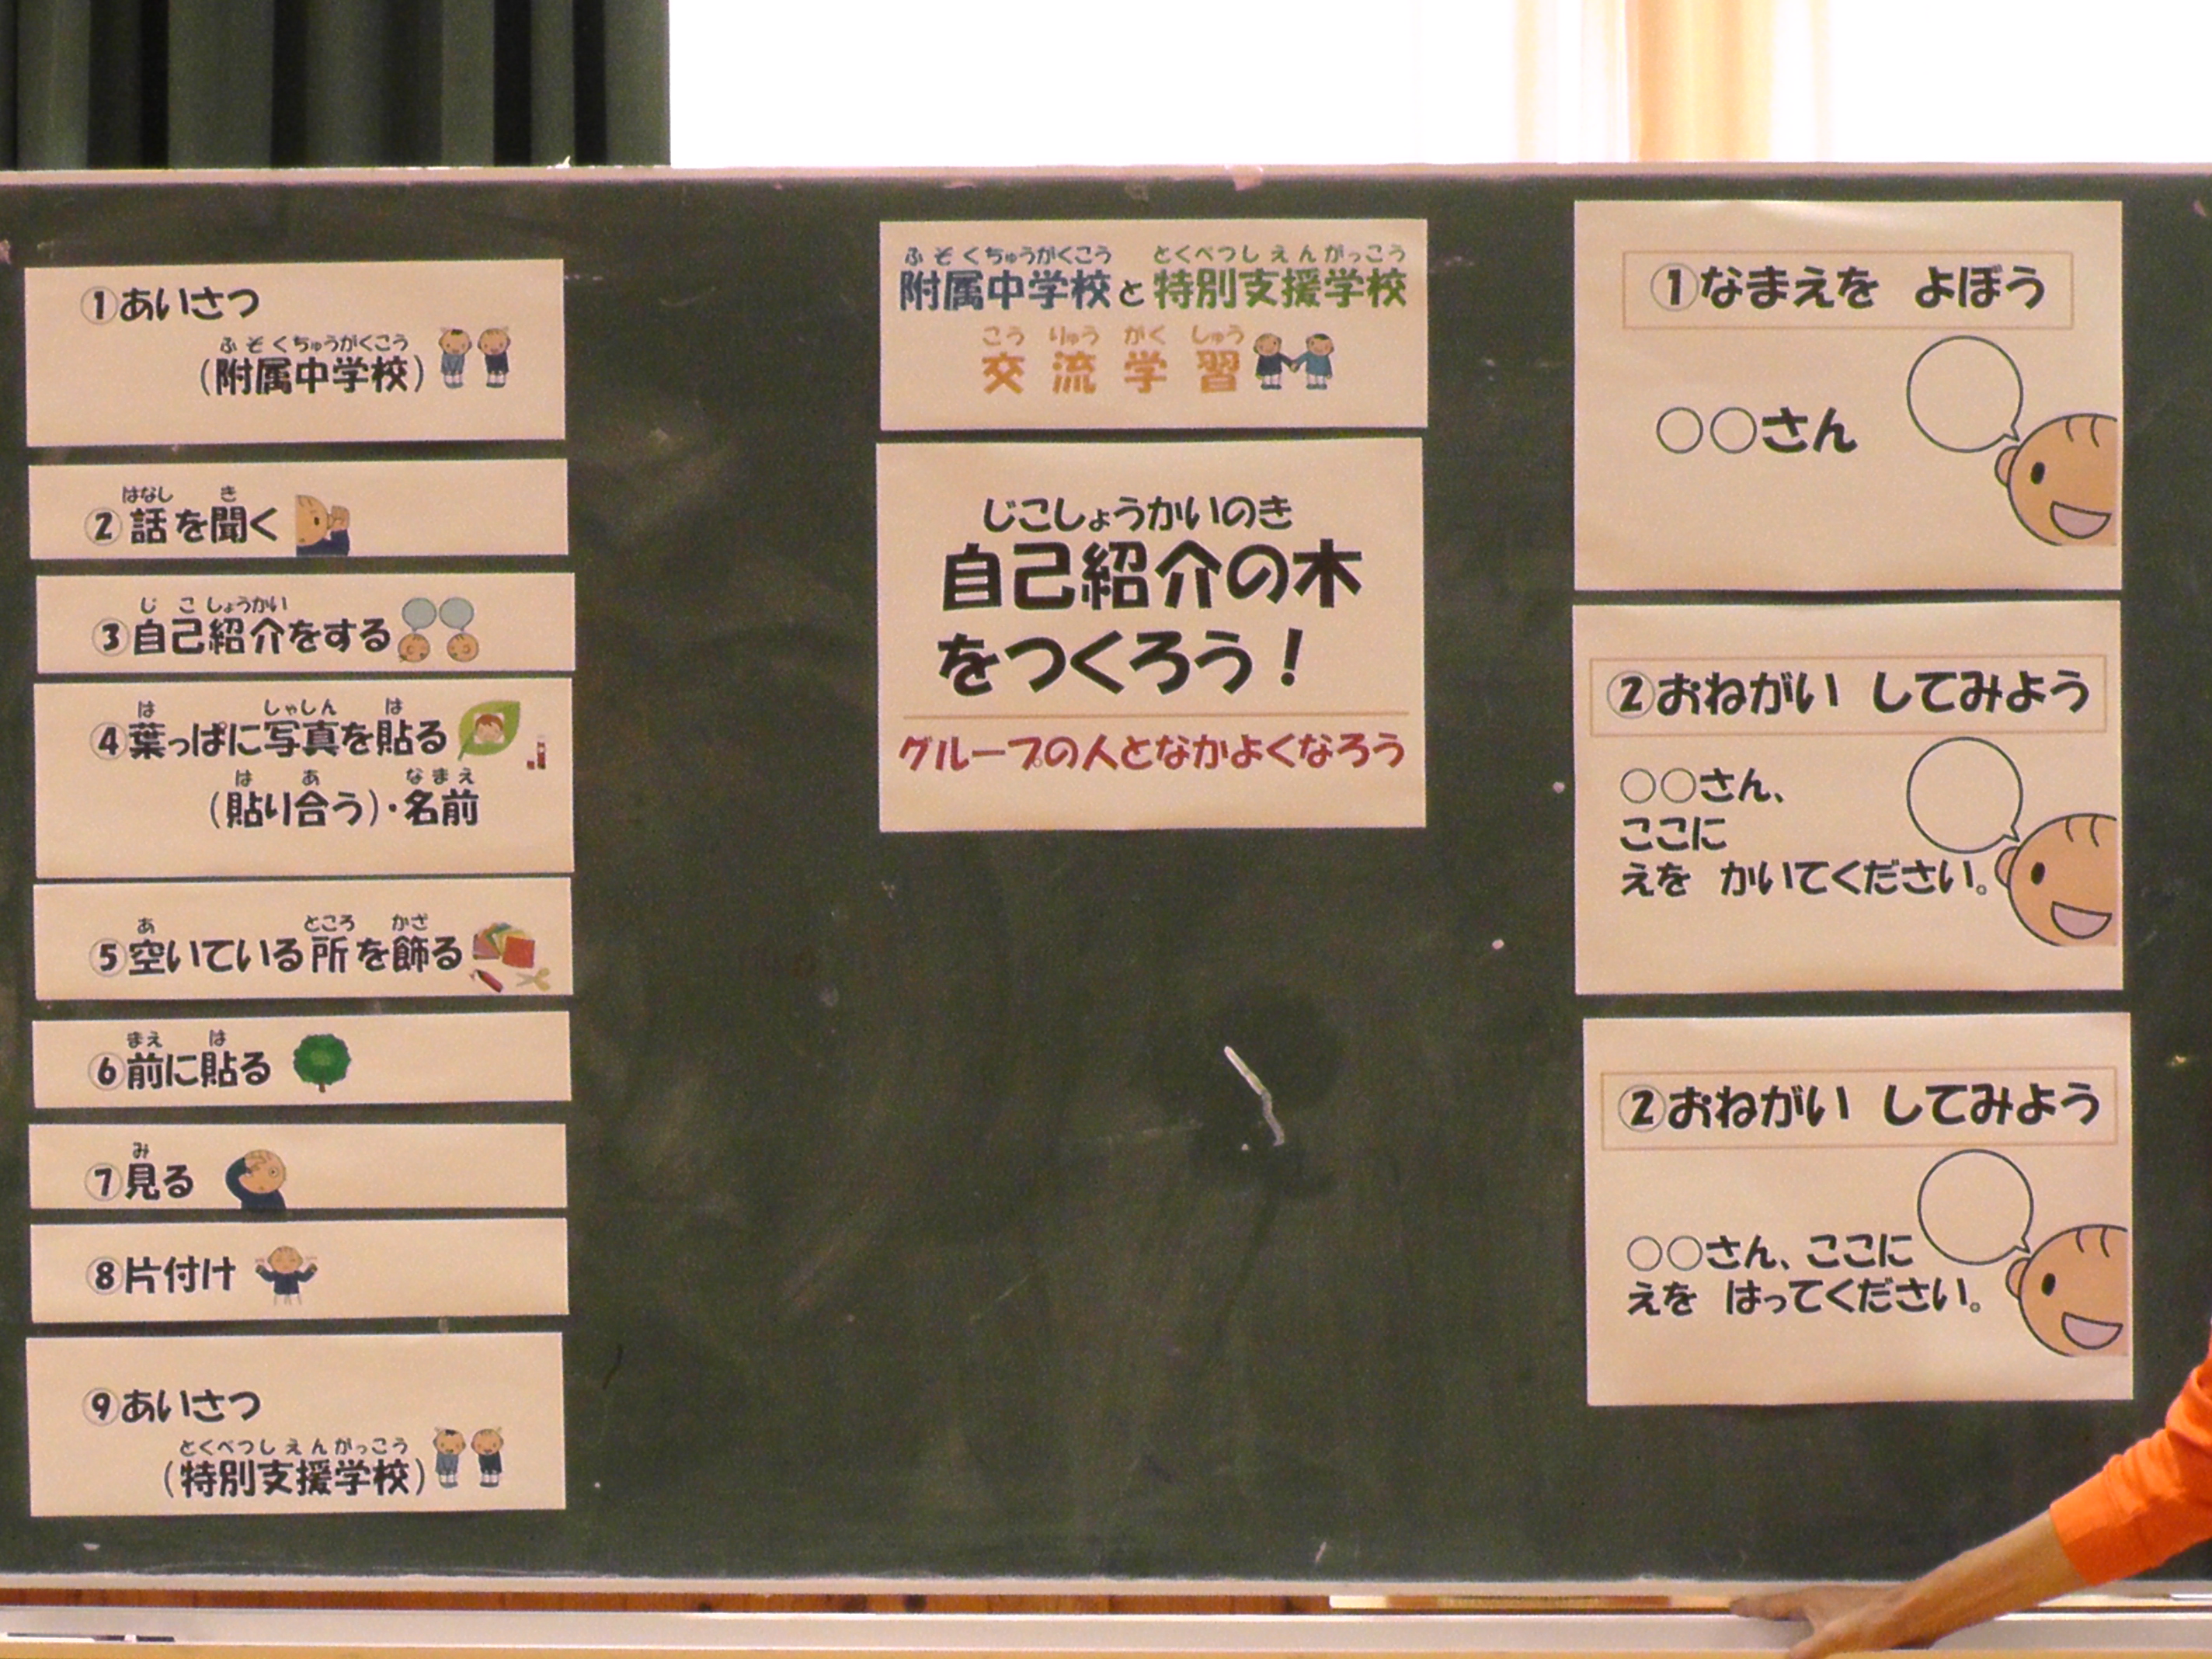 ①あいさつ
ふぞくちゅうがくこう
(附属中学校)
はなし き
②話を聞く
じこしょうかい
③自己紹介をする
は しゃしん は
④葉っぱに写真を貼る
は あ なまえ
(貼り合う)・名前
あ ところ かざ
⑤空いている所を飾る
まえ は
⑥前に貼る
み
⑦見る
⑧片付け
⑨あいさつ
とくべつしえんがっこう
(特別支援学校)
ふぞくちゅうがくこう とくべつしえんがっこう
附属中学校と特別支援学校
こう りゅう がく しゅう
交流学習
じこしょうかいのき
自己紹介の木
をつくろう！
グループの人となかよくなろう
①なまえを よぼう
○○さん
②おねがい してみよう
○○さん、
ここに
えを かいてください。
②おねがい してみよう
○○さん、ここに
えを はってください。